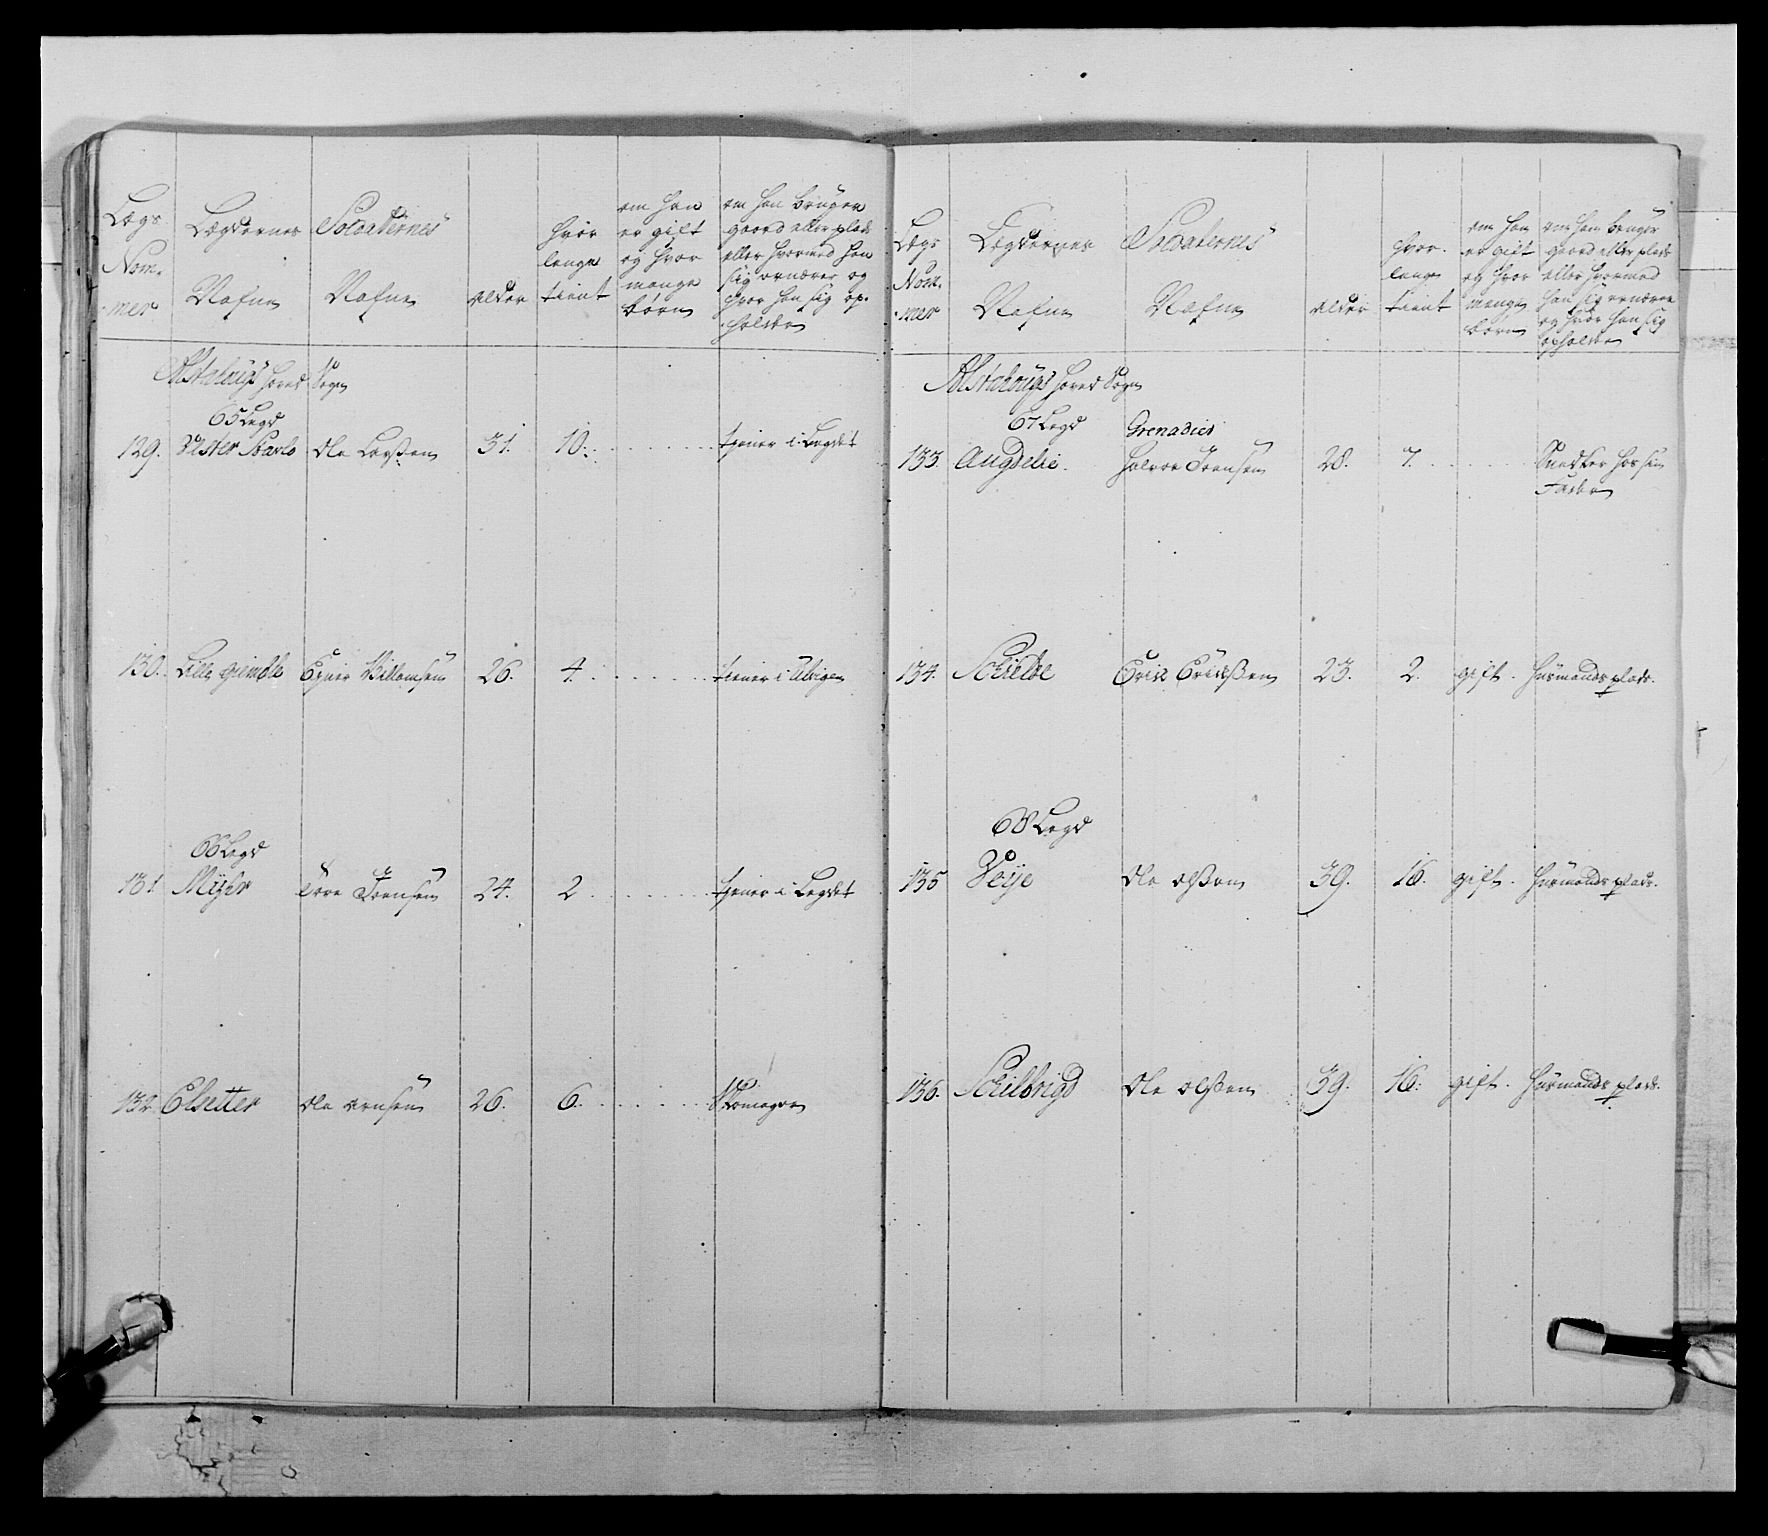 Lægs Nom-mer
Lægdernes Nafne
Soldaternes Nafne
alder
hvor lenge tient
om han er gift og hvor mange børn
om han bruger gaard eller plads eller hvormed han sig ernærer og hvor han sig op-holder
Alstahougs hoved Sogn
65 Legd
129. Vester Karlo Ole Larssen 31. 10. tjener i Legdet
130. Lille greindle Ejner Willomsen 26. 4. tiener i
66 Legd
131 Myhr Tore Joensen 24. 2 tjener i Legdet
132 Elsetter Ole Arnsen 26. 6. Skomager
Lægs Nom-mer
Lægdernes Nafne
Soldaternes Nafne
alder
hvor lenge tient
om han er gift og hvor mange børn
om han bruger gaard eller plads eller hvormed han sig ernærer og hvor han sig opholder
Alstahougs hoved Sogn
67 Legd Grenadier
133. Augdelie. Halvor Joensen 28. 7. Snedker hos sin
Fader
134. Schielde Erik Erickssen 23. 2. gift. Huusmands plads.
68 Legd
135 Veije Ole Olssen 39. 16. gift. Huusmands plads.
136. Schelbrigd Ole Olssen 39. 16. gift. Huusmands plads.